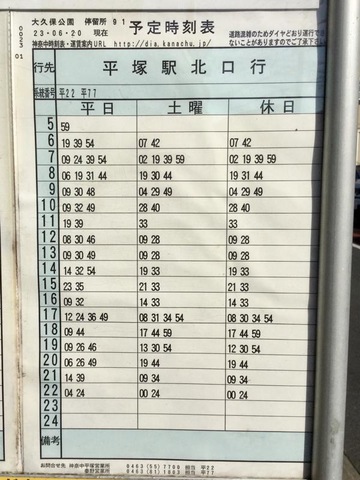 大久保公園 停留所 91 予定時刻表
23・06・20 現在
神奈中時刻表・運賃案内URL http://dia.kanachu.jp/
道路混雑のためダイヤどおり運行で
ないことがありますのでご了承下
0023
01
行先 平塚駅北口行
系統番号 平22 平77
平日 土曜 休日
5 59
6 19 39 54 07 42 07 42
7 09 24 39 54 02 19 39 59 02 19 39 59
8 06 19 31 44 19 30 44 19 31 44
9 09 30 48 04 29 49 04 29 49
10 09 32 49 28 40 28 40
11 19 39 33 33
12 08 30 46 09 28 09 28
13 09 30 49 09 28 09 28
14 14 32 54 19 33 19 33
15 23 35 21 33 21 33
16 09 32 14 33 14 33
17 12 24 36 49 08 31 34 54 08 30 34 54
18 09 44 17 44 59 17 44 59
19 09 26 46 13 30 54 12 30 54
20 06 26 49 19 44 19 44
21 14 39 09 34 09 34
22 04 24 00 24 00 24
23
24
備考
お問合せ先 神奈中平塚営業所 0463 (55) 7700 担当 平22
秦野営業所 0463 (81) 1803 担当 平77